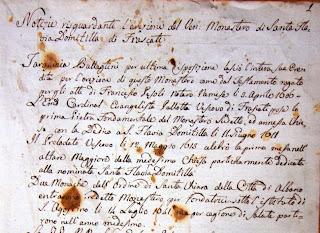 1
Notizie risguardanti l'erezione del Ven: Monastero di Santa Fla-
via Domitilla di Frascati
Tarquinia Battaglini per ultima disposizione lasciò l'intera sua Ere-
dità per l'erezione di questo Monastero come dal Testamento rogato
per gli atti di Francesco Notaro Capitol: 8. Aprile 1606
L'Emo Cardinal Evangelista Pallotta Vescovo di Frascati pose la
prima Pietra fondamentale del Monastero Sudetto, ed annessa Chie-
sa con la Dedica a S. Flavia Domitilla li Giugno 1611
Il Prelodato Vescovo li 12 Maggio 1613 celebrò la prima messa nell'
altare Maggiore della medesima Chiesa particolarmente dedicata
alla nominata Santa Flavia Domitilla
Due Monache dell'Ordine di Santa Chiara della Città di Albano
entrarono in detto Monastero per fondatrici sotto l'istituto di
S. Agostino li 14 Luglio 1621, ma per cagione di salute parti-
rono nell'anno medesimo